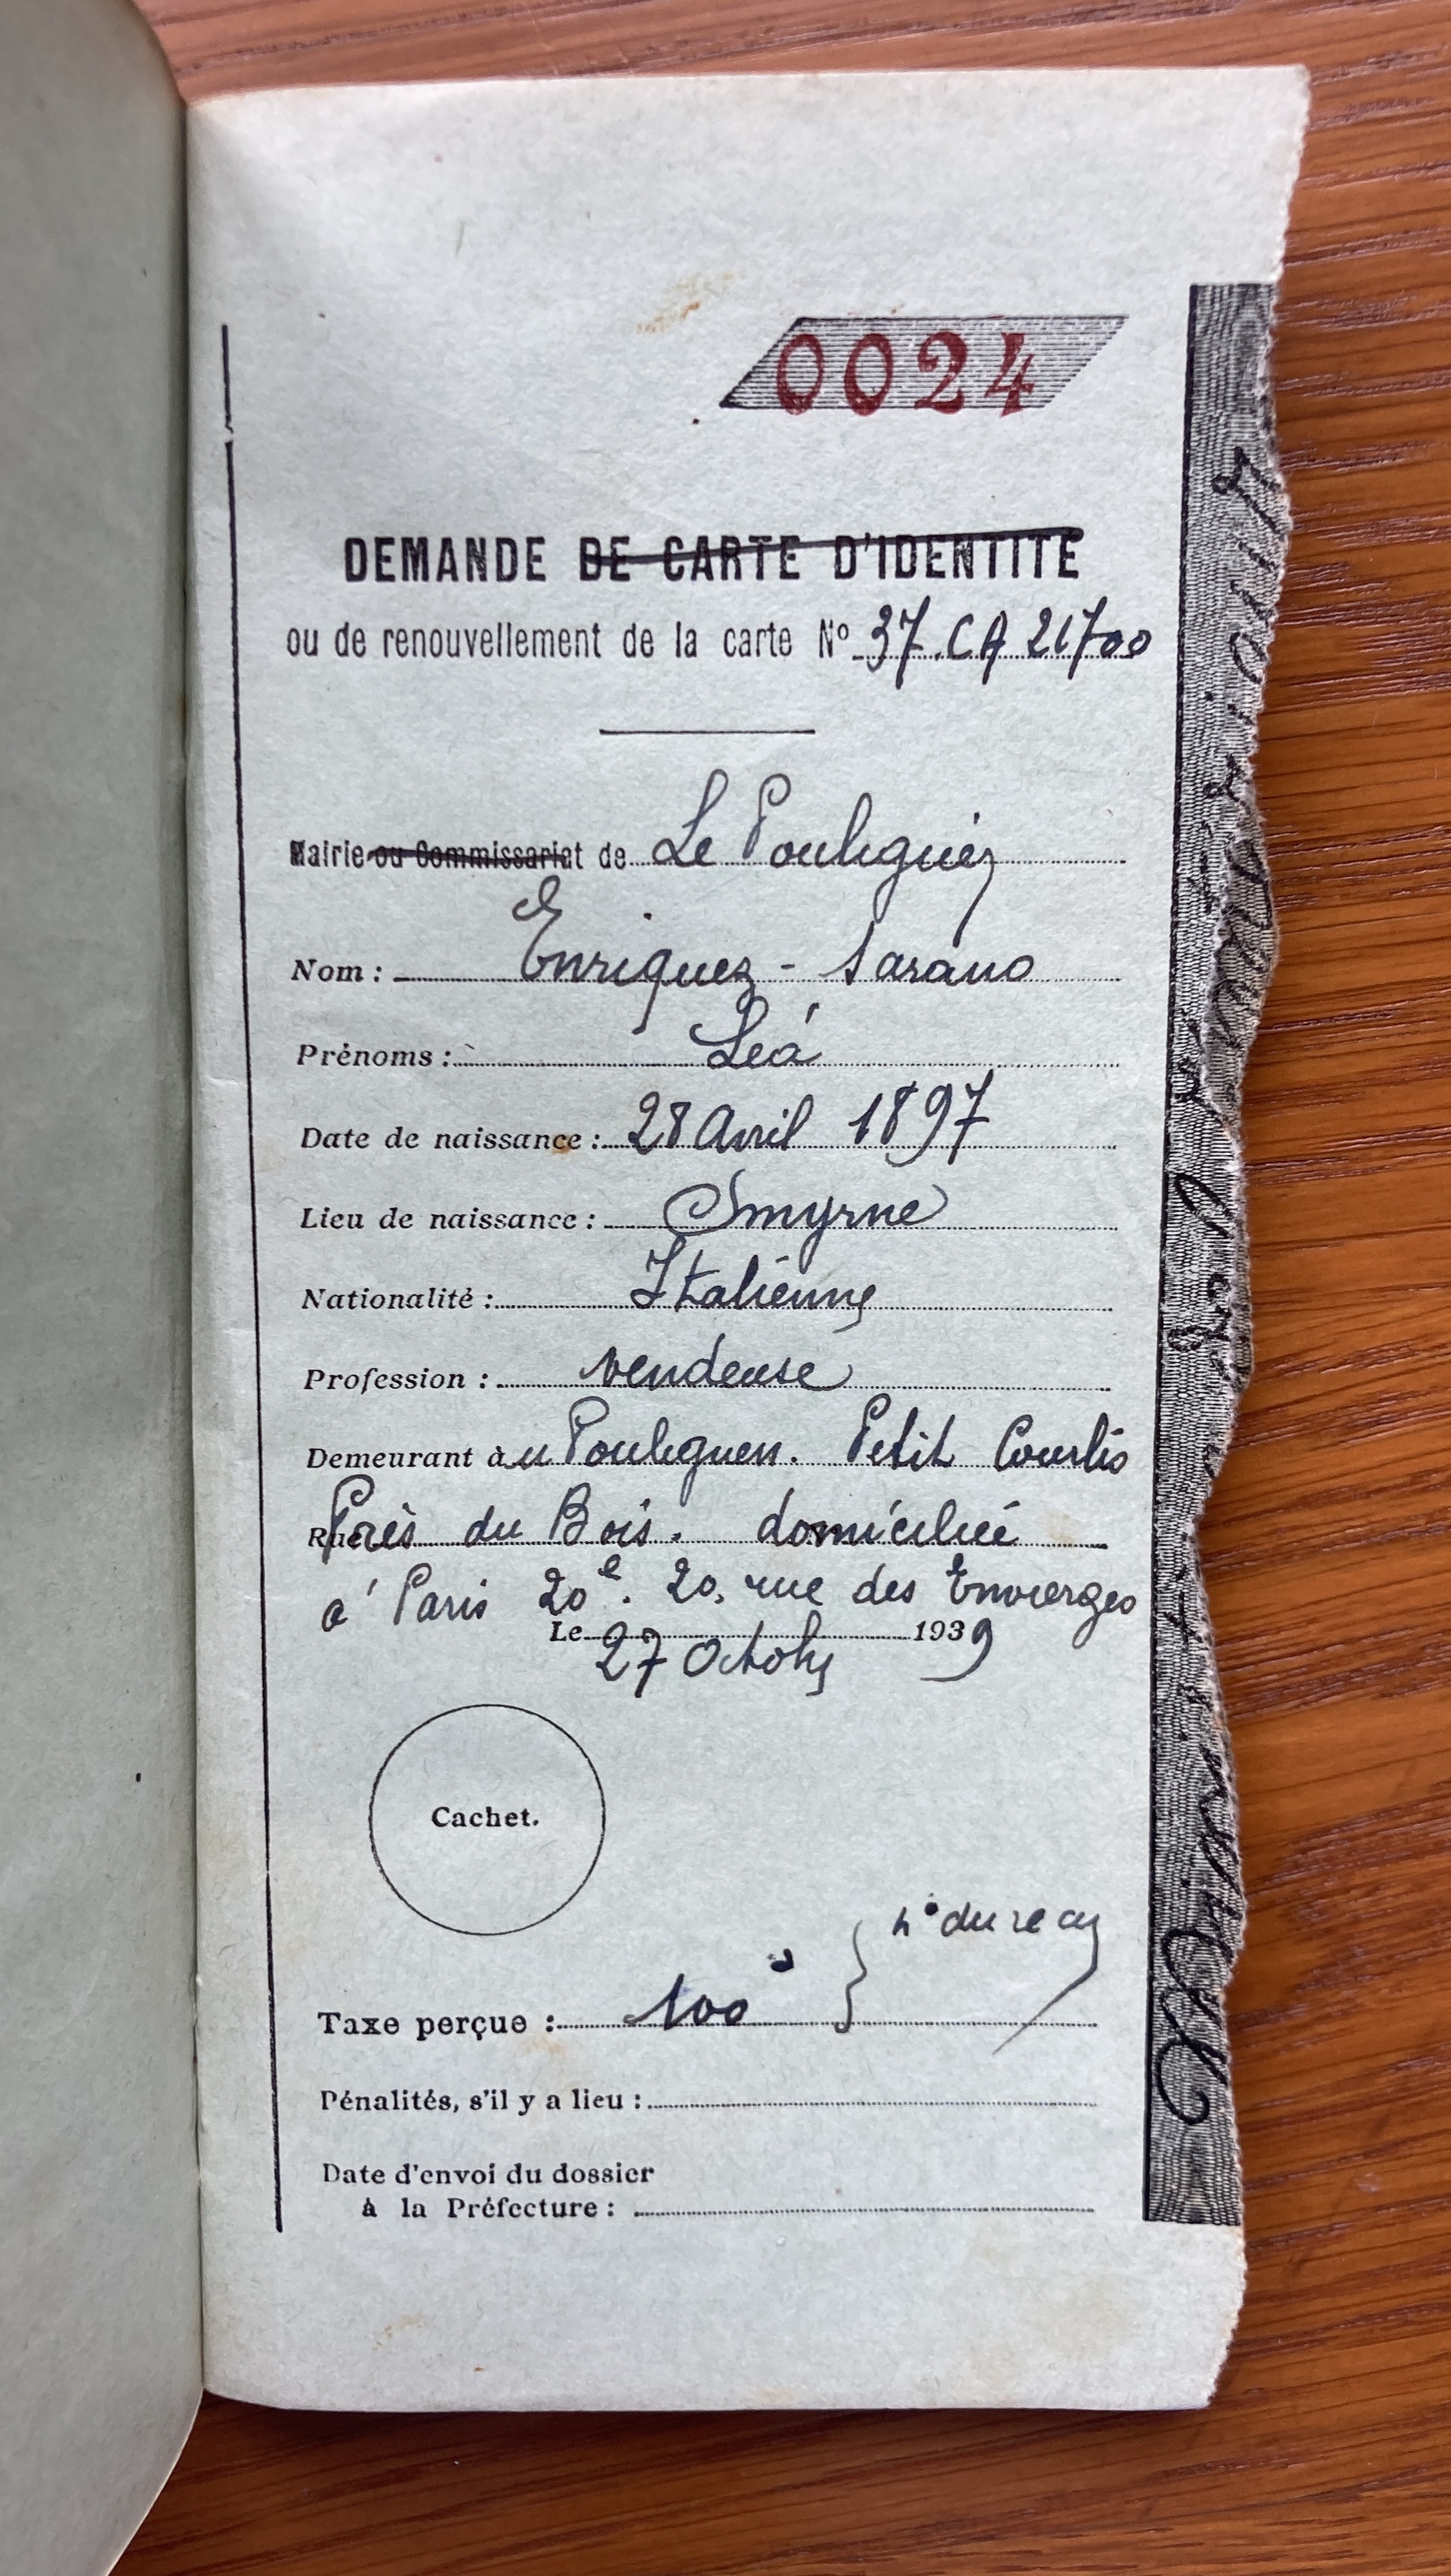 0024
DEMANDE DE CARTE D'IDENTITE
ou de renouvellement de la carte Nº 37.CA 21700
Mairie ou Commissariat de Le Pouliguen
Nom : Enriquez - Sarano
Prénoms : Léa
Date de naissance : 28 Avril 1897
Lieu de naissance : Smyrne
Nationalité : Italienne
Profession : vendeuse
Demeurant à u Pouliguen. Petit Courlis
Rue Près du Bois. domiciliée
à Paris 20e. 20, rue des Envierges
Le 27 Octobre 1939
Cachet.
nº du reçu
Taxe perçue : 100
Pénalités, s'il y a lieu :
Date d'envoi du dossier
à la Préfecture :